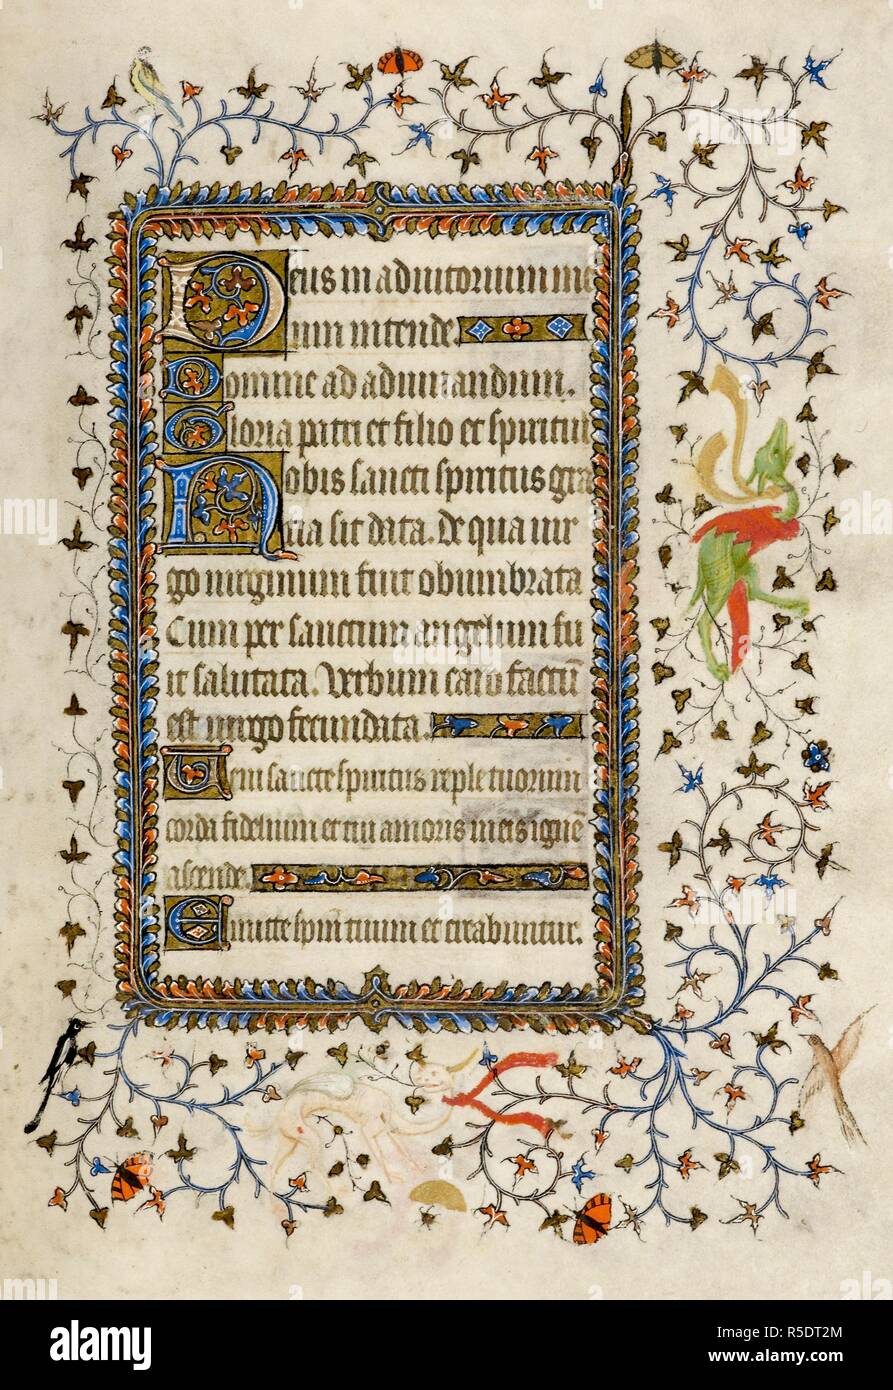 Deus in adiutorium me
um intende.
Domine ad adiuuandum.
Gloria patri et filio et spiritui
Nobis sancti spiritus gra
tia sit data. de qua uir
go uirginum fuit obumbrata
Cum per sanctum angelum fu
it salutata. Verbum caro factū
est uirgo fecundata.
Veni sancte spiritus reple tuorum
corda fidelium et tui amoris in eis ignē
ascende.
Emitte spm̄ tuum et creabuntur.
alamy
Image ID: R5DT2M
www.alamy.com